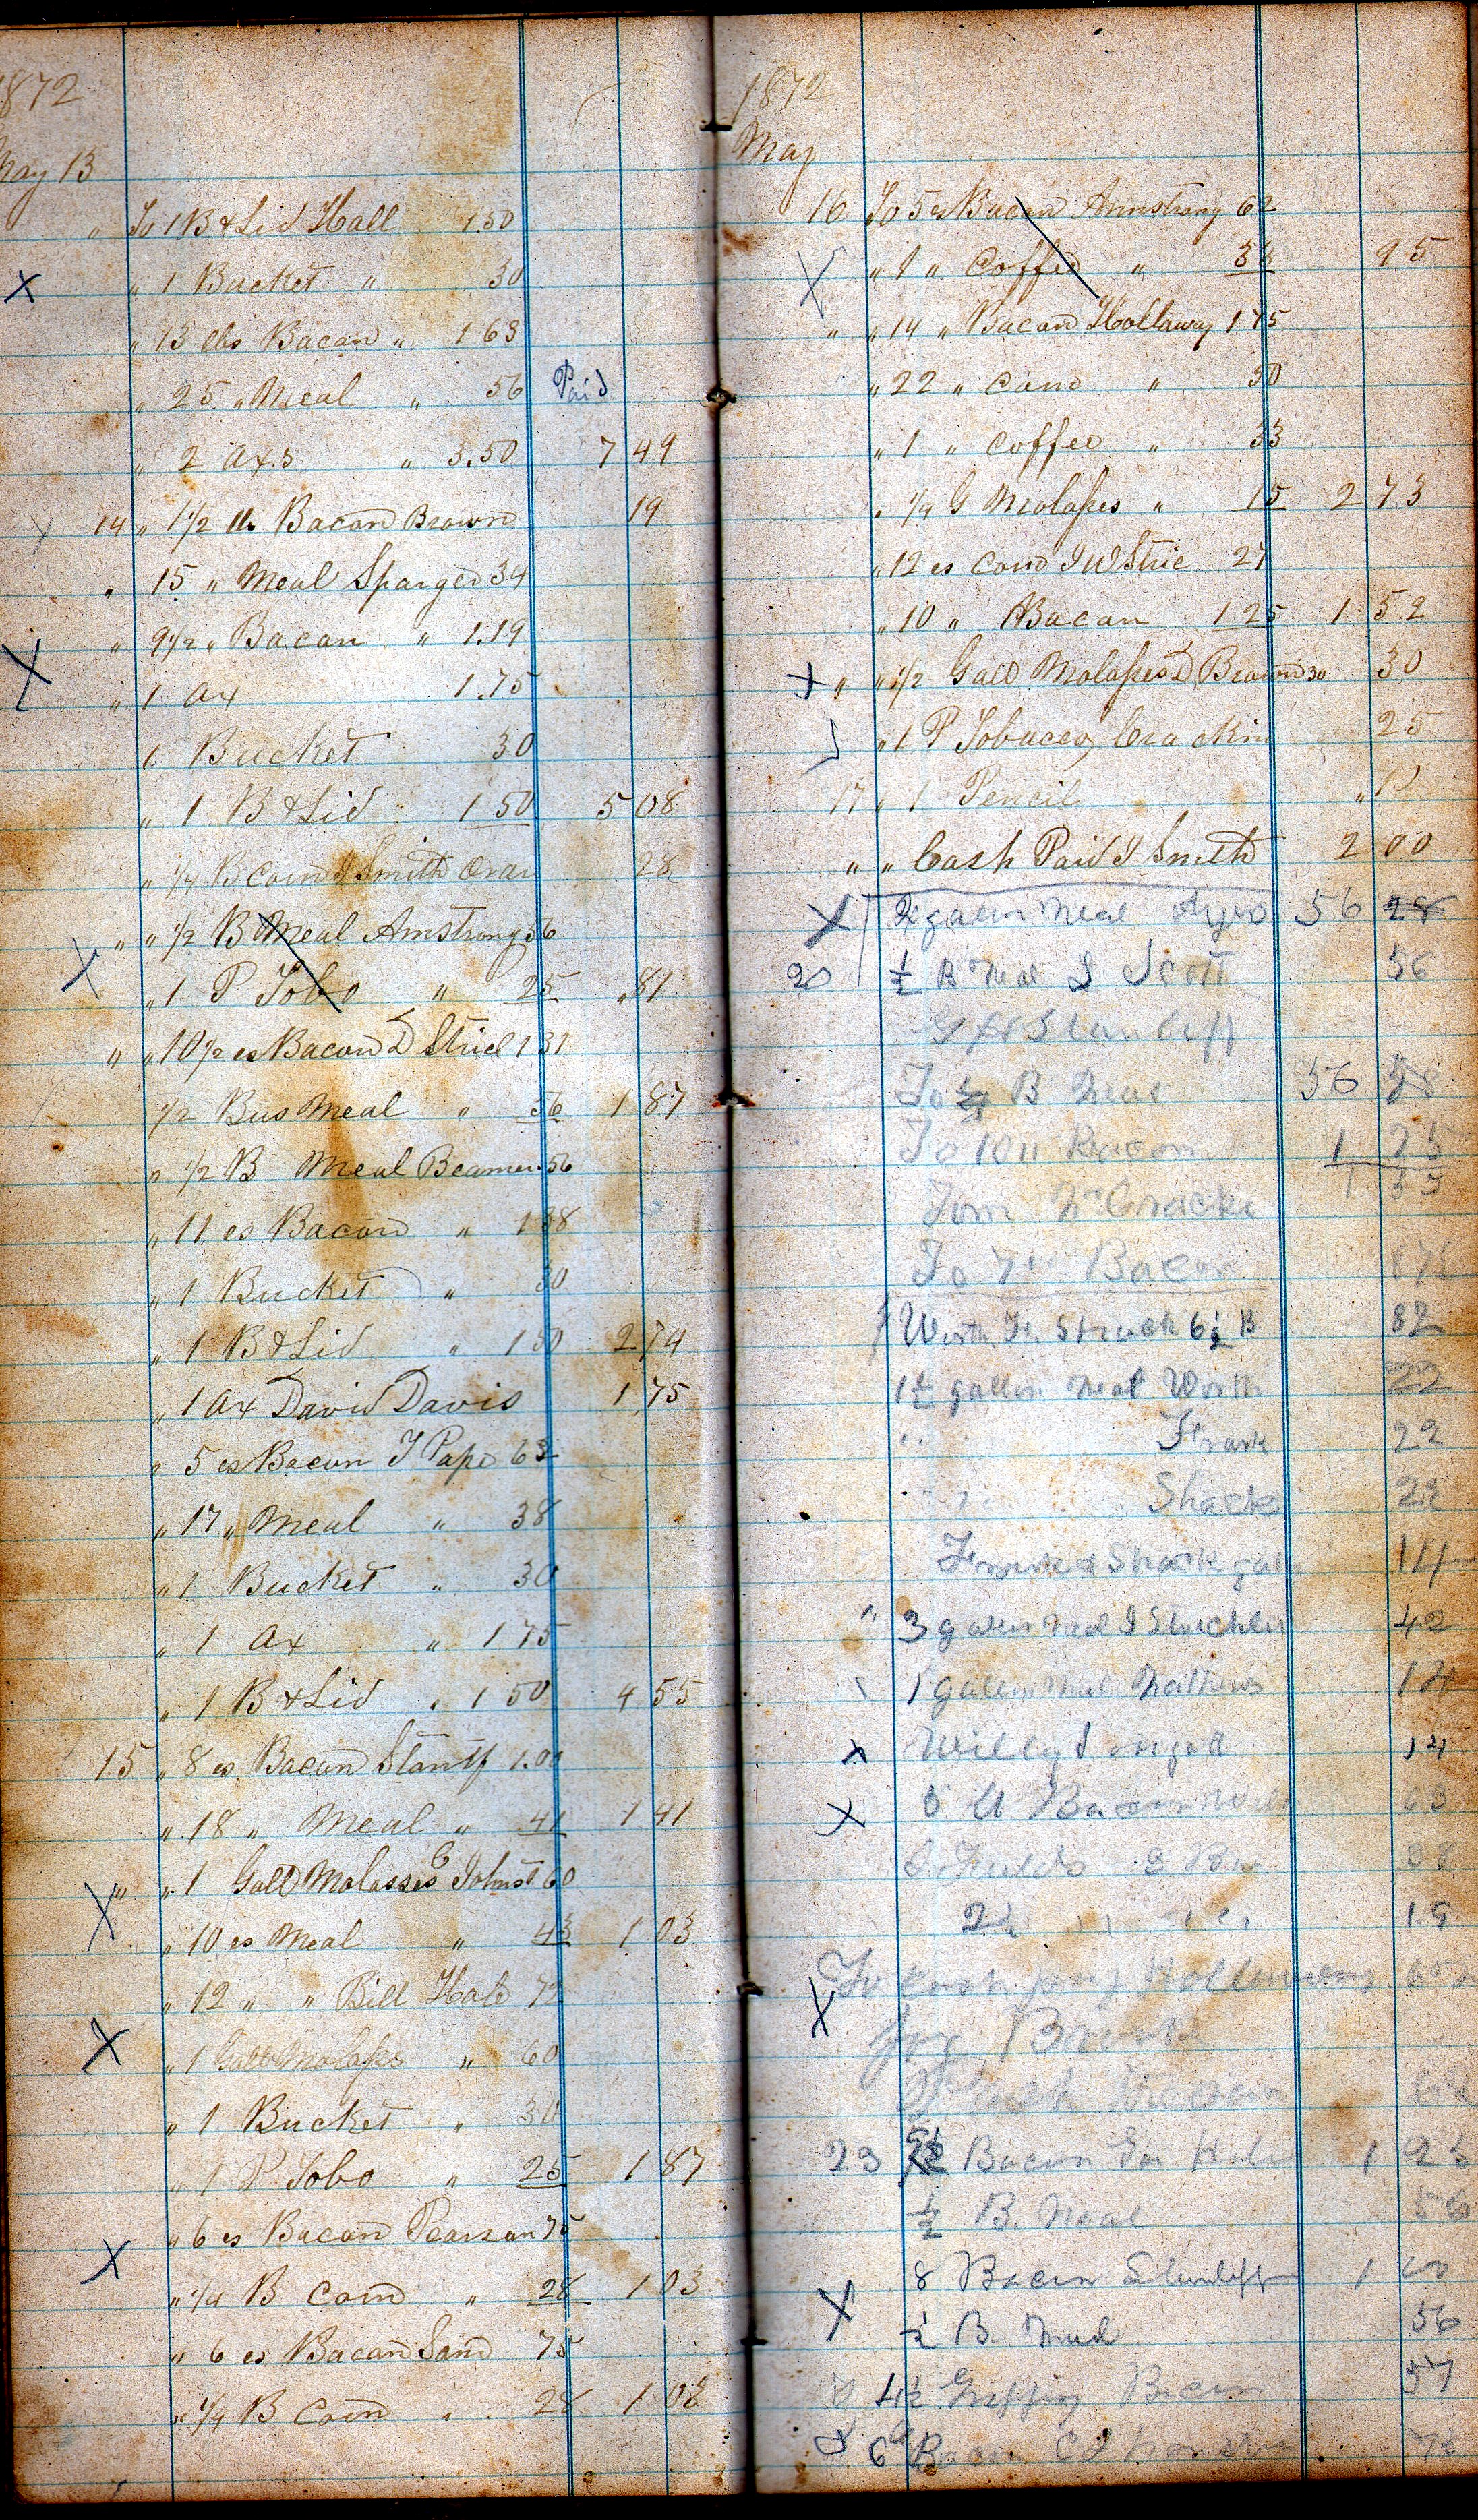 1872
May 13
" To 1 B & Lid Hall 1.50
x " 1 Bucket " 30
" 13 lbs Bacon " 1 63
" 25 " Meal " 56 Paid
" 2 Axs " 3.50 7 49
14 " 1 1/2 lb Bacon Brown 19
" 15 " Meal Sparger 34
" 9 1/2 " Bacon " 1.19
X " 1 Ax 1.75
1 Bucket 30
" 1 B & Lid 1 50 5 08
" 1/4 B Corn J Smith 28
" " 1/2 B Meal Armstrong 56
X " 1 P Tobo " 25 " 81
" " 10 1/2 lbs Bacon D Stricl 1 31
1/2 Bus Meal " 56 1 87
" 1/2 B Meal Beamer 56
" 11 lbs Bacon " 1 38
" 1 Bucket " 30
" 1 B & Lid " 1 50 2 74
" 1 Ax David Davis 1 75
" 5 lbs Bacon J Pape 62
" 17 " Meal " 38
" 1 Bucket " 30
" 1 Ax " 1 75
" 1 B & Lid " 1 50 4 55
15 " 8 lbs Bacon Stantf 1.00
" 18 " Meal " 41 1 41
X " " 1 Gall Molasses C Johnst 60
" 10 lbs Meal " 43 1 03
" 12 " " Bill Hale 72
X " 1 Gall Molasses " 60
" 1 Bucket " 30
" 1 P Tobo " 25 1 87
" 6 lbs Bacon Pearson 75
X " 1/4 B Corn " 28 1 03
" 6 lbs Bacon Sand 75
" 1/4 B Corn " 28 1 03
1872
May
16 To 5 lbs Bacon Armstrong 62
X " 1 " Coffee " 33 95
" " 14 " Bacon Hollaway 1 75
" 22 " Corn " 50
" 1 " Coffee " 33
" 1/4 G Molasses " 15 2 73
" 12 lbs Corn J W Stric 27
" 10 " Bacon 1 25 1 52
x " " 1/2 Gall Molasses D Brown 30 30
" 1 P Tobacco 25
17 " 1 Pencil " 10
" " Cash Paid J Smith 2 00
X galen Meal Ayers 56 28
20 1/2 B Meal J Scott 56
To B Meal 56
To 10 " Bacon 1 25
Tom McCracke
To 7 " Bacon 87
Worth Fr Shack 6 1/2 B 82
1 1/2 gallen Meal Worth 22
" Frank 22
" " Shack 22
Frank & Shack gal 14
" 3 galen Meal J 42
1 galen Meal Mathews 14
x Willey 14
X Bacon 63
Fields 3 38
19
To cash Hollaway
X for
23 Bacon 1 23
1/2 B. Meal 56
8 Bacon 1 00
X 1/2 B. Meal 56
4 1/2 Bacon 57
6 Bacon 75